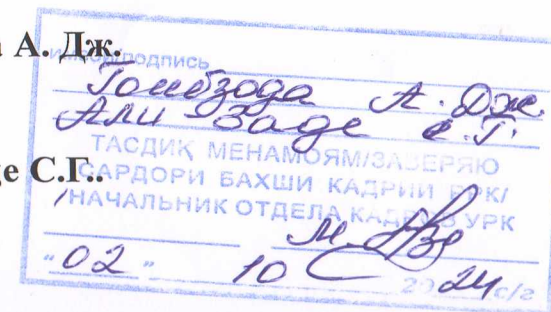 А. Дж.
подпись
Гоибзода А. Дж.
Али-Заде С.Г.
ТАСДИҚ МЕНАМОЯМ/ЗАВЕРЯЮ
САРДОРИ БАХШИ КАДРИИ
С.Г..
НАЧАЛЬНИК ОТДЕЛА КАДРОВ УРК
"02" 10 2024 с/г